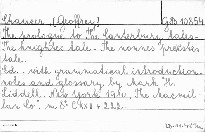 Chaucer, (Geoffrey) GB 10854
The prologue to the Canterbury tales-
The knightes tale. The nonnes preestes
tale.
Ed. with grammatical introduction
notes and glossary by Mark H.
Liddell. New York 1910. The Macmil-
lan Co. in 8º + 222.